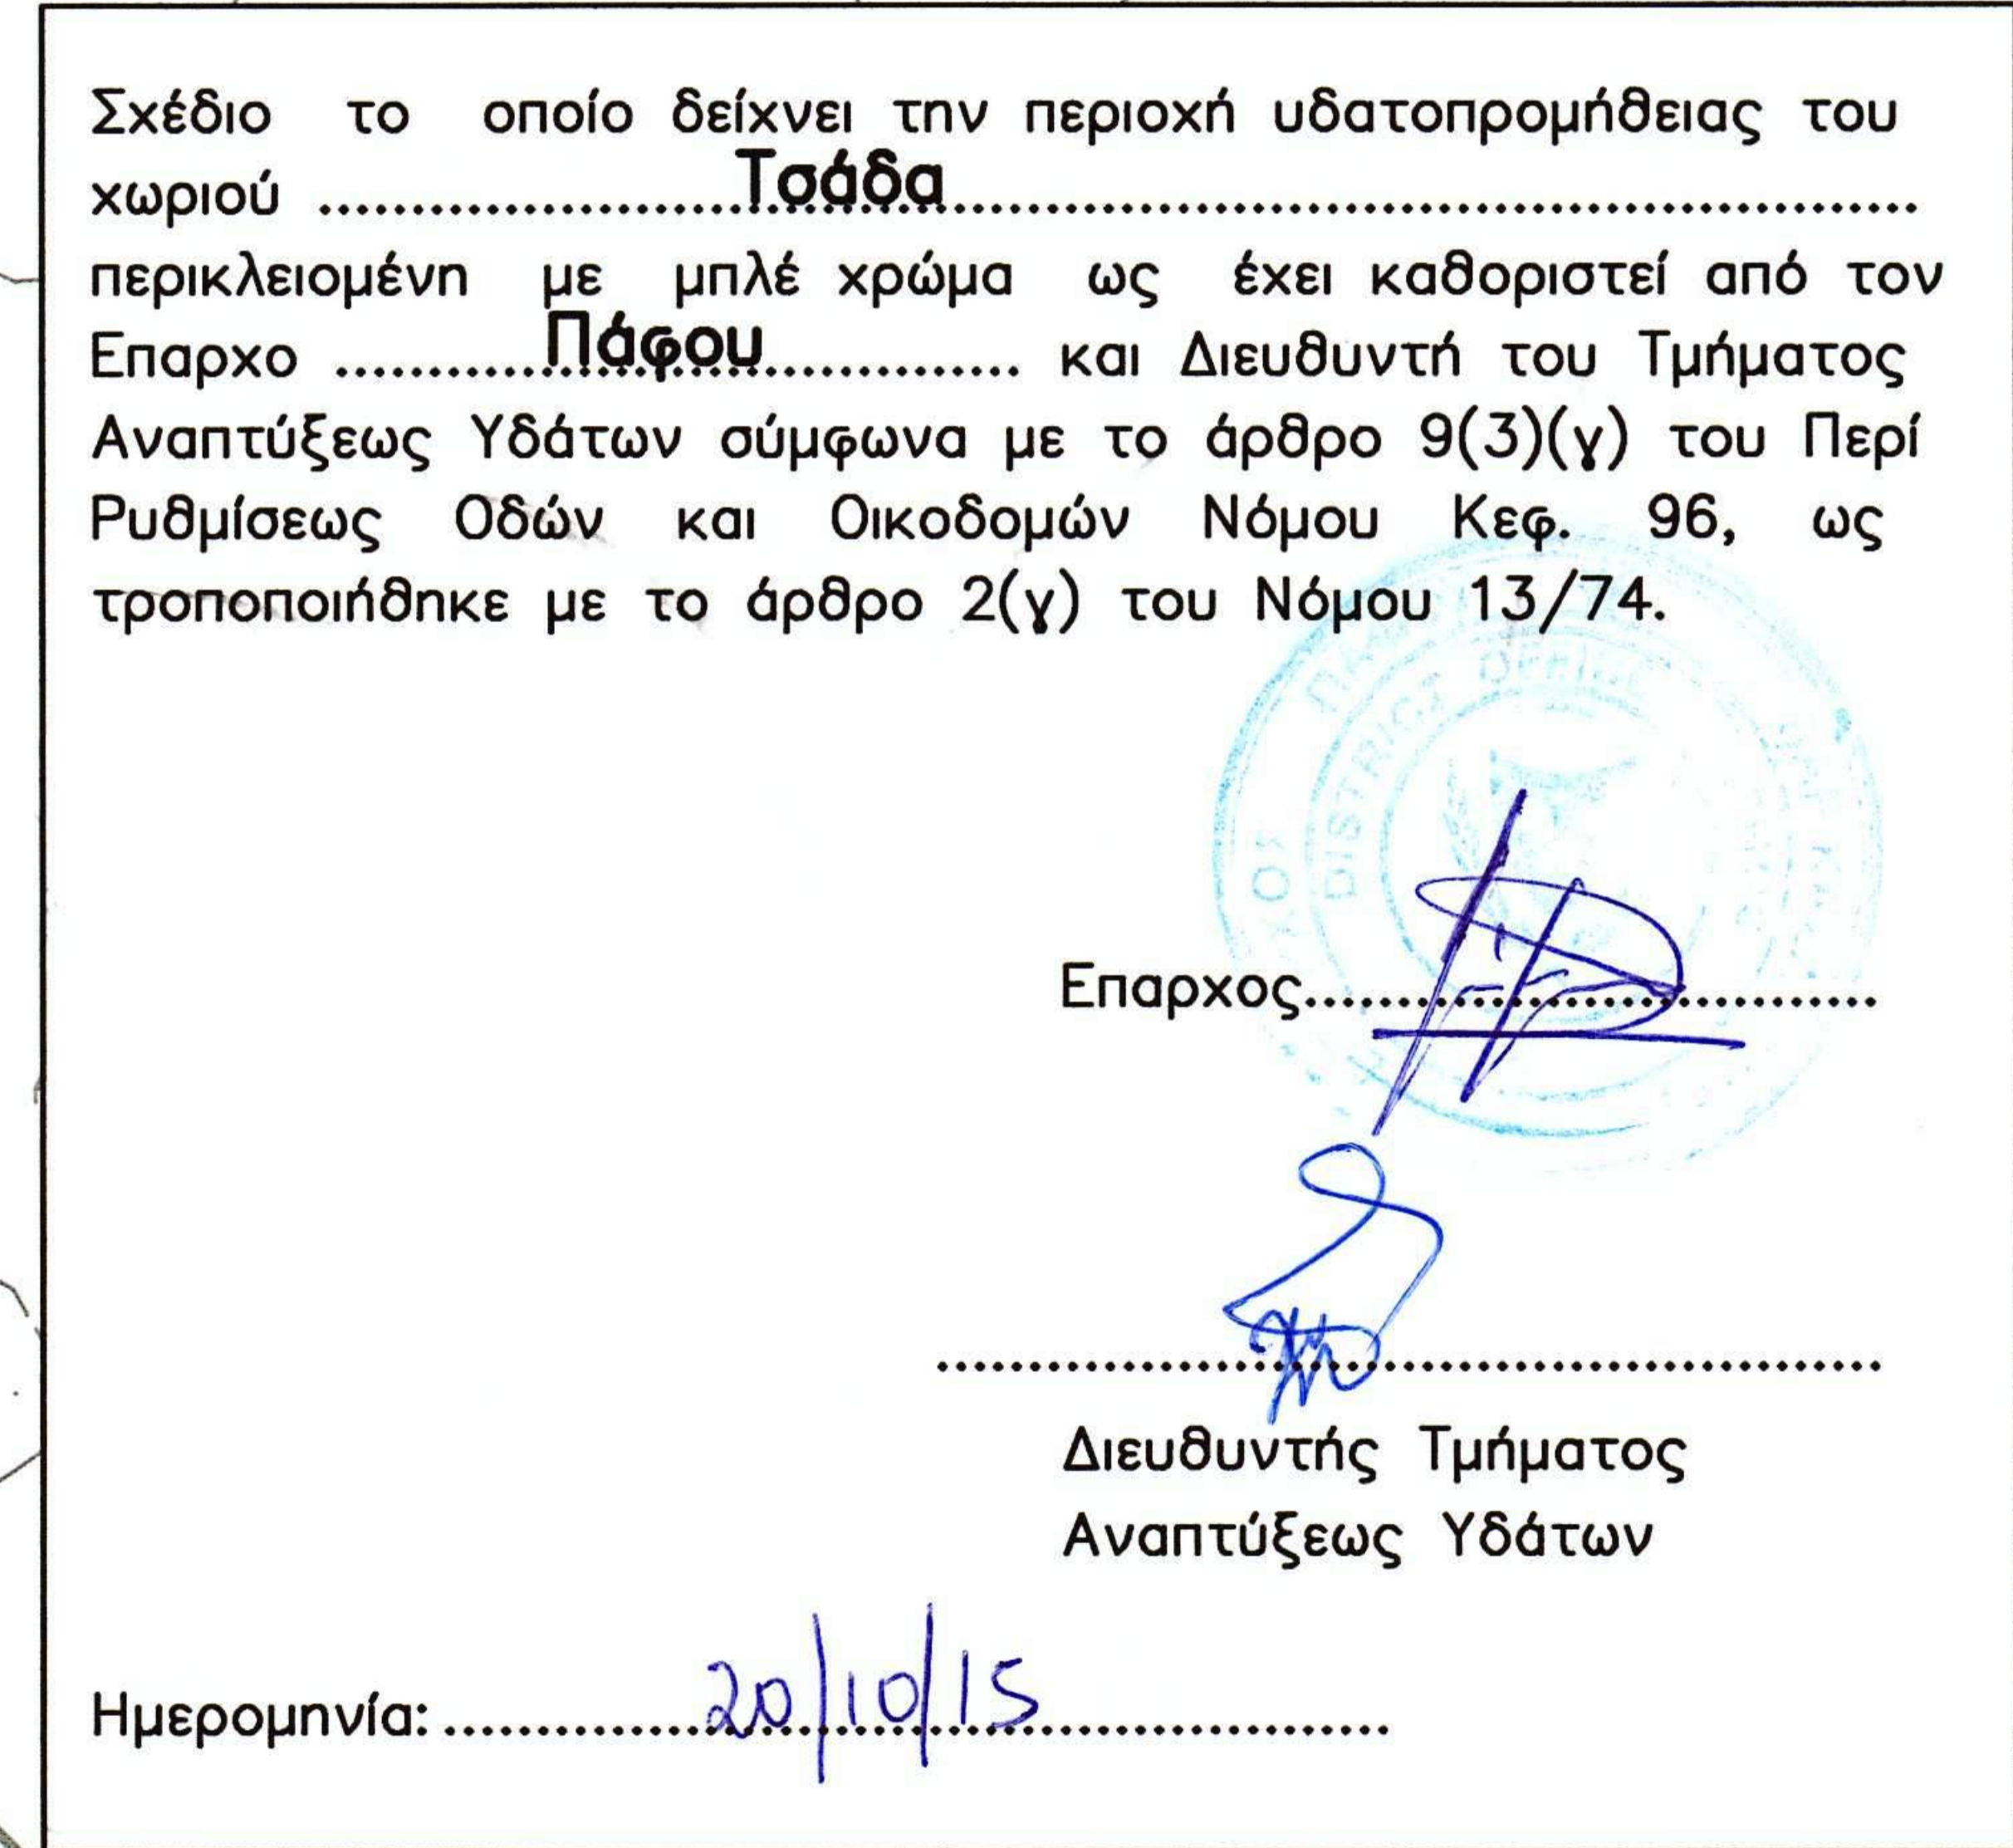 Σχέδιο το οποίο δείχνει την περιοχή υδατοπρομήθειας του
χωριού ........................Τσάδα....................................................
περικλειομένη με μπλέ χρώμα ως έχει καθοριστεί από τον
Επαρχο ............Πάφου.............. και Διευθυντή του Τμήματος
Αναπτύξεως Υδάτων σύμφωνα με το άρθρο 9(3)(γ) του Περί
Ρυθμίσεως Οδών και Οικοδομών Νόμου Κεφ. 96, ως
τροποποιήθηκε με το άρθρο 2(γ) του Νόμου 13/74.
DISTRICT OFFICE
Επαρχος................................
Διευθυντής Τμήματος
Αναπτύξεως Υδάτων
Ημερομηνία: ...............20/10/15....................